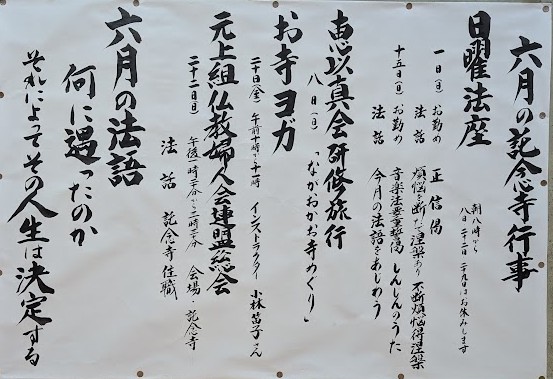 六月の記念寺行事
日曜法座
朝八時から
八日・二十二日・二十九日はお休みします
一日(日) お勤め 正信偈
法話 煩悩を断じて涅槃あり 不断煩悩得涅槃
十五日(日) お勤め 音楽法要重誓偈 しんじんのうた
法話 今月の法語をあじわう
恵以真会研修旅行
八日(日) 「ながおかお寺めぐり」
お寺ヨガ
二十日(金) 午前十時〜十一時 インストラクター 小林苗子さん
元上組仏教婦人会連盟総会
二十二日(日) 午後一時三十分〜三時三十分 会場・記念寺
法話 記念寺住職
六月の法語
何に遇ったのか
それによってその人生は決定する